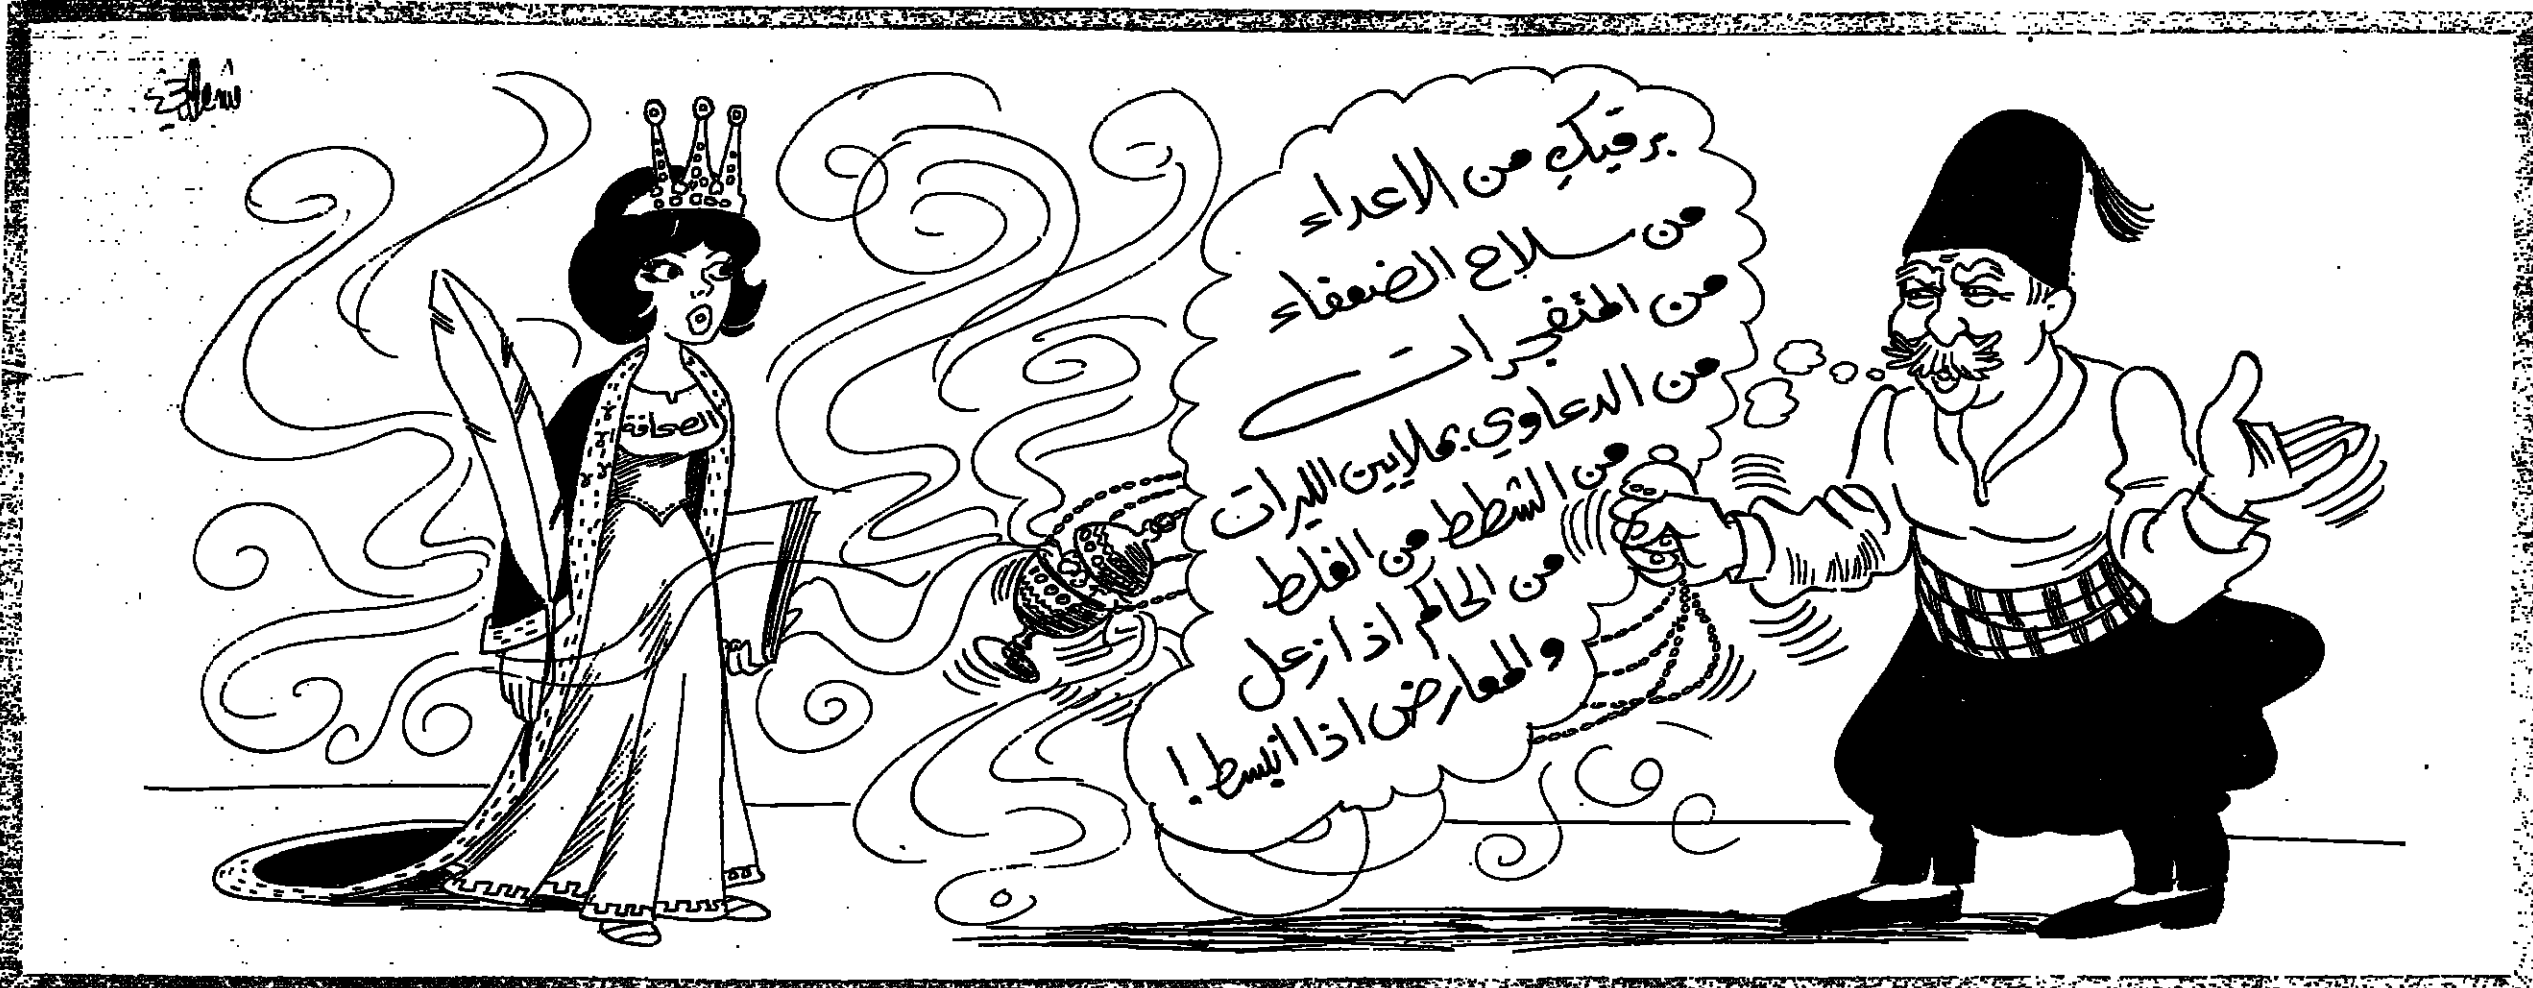 برقيكِ من الاعداء
من سلاح الضعفاء
من المتفجرات
من الدعاوي بملايين الليرات
من الشطط من الغلط
من الحاكم اذا زعل
والمعارض اذا انبسط!
الصحافة